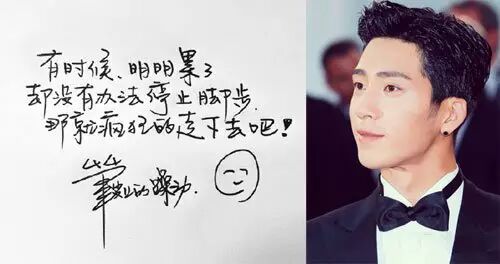 有时候、明明累了
却没有办法停止脚步.
那就疯狂的走下去吧!